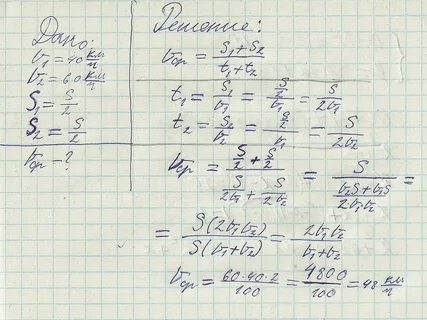 Дано:
υ₁ = 40 км/ч
υ₂ = 60 км/ч
S₁ = S/2
S₂ = S/2
υср = ?
Решение:
υср = (S₁ + S₂)/(t₁ + t₂)
t₁ = S₁/υ₁ = (S/2)/υ₁ = S/(2υ₁)
t₂ = S₂/υ₂ = (S/2)/υ₁ = S/(2υ₂)
υср = (S/2 + S/2)/(S/(2υ₁) + S/(2υ₂)) = S/((υ₂S + υ₁S)/(2υ₁υ₂)) =
= S(2υ₁υ₂)/S(υ₁+υ₂) = 2υ₁υ₂/(υ₁+υ₂)
υср = (60·40·2)/100 = 4800/100 = 48 км/ч